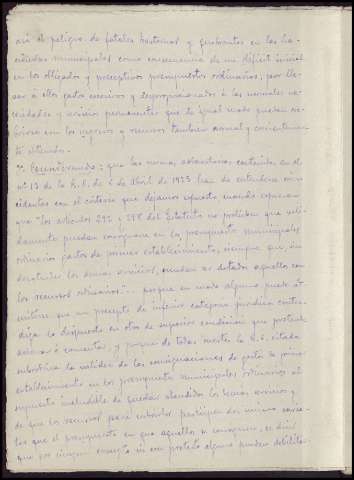 así el peligro de fatales trastornos y quebrantos en las ha-
ciendas municipales como consecuencia de un déficit inicial
en los obligados y preceptivos presupuestos ordinarios, por lle-
var á ellos gastos excesivos y desproporcionados á las normales ne-
cesidades y servicios permanentes que de igual modo puedan
en los ingresos y recursos también normal y corrientemen-
te obtenidos.
Considerando: que las normas aclaratorias contenidas en el
nº 13 de la R.O. de 6 de Abril de 1925 han de entenderse coin-
cidentes con el criterio que dejamos expuesto, cuando expresan
que "los artículos 292 y 298 del Estatuto no prohiben que váli-
damente puedan consignarse en los presupuestos municipales
ordinarios gastos de primer establecimiento, siempre que, sin
desatender los demás servicios, puedan ser dotados aquellos con
los recursos ordinarios".. porque en modo alguno puede ad-
mitirse que un precepto de inferior categoría jurídica contra-
diga lo dispuesto en otro de superior condición que pretende
aclarar ó comentar, y porque de todas suertes la R.O. citada
subordina la validez de las consignaciones de gastos de primer
establecimiento en los presupuestos municipales ordinarios al
supuesto ineludible de quedar atendidos los demás servicios y
de que los recursos para cubrirlos participen del mismo carác-
ter que el presupuesto en que aquellos se consignen, es decir
que por ningún concepto ni con pretexto alguno puedan debilitar